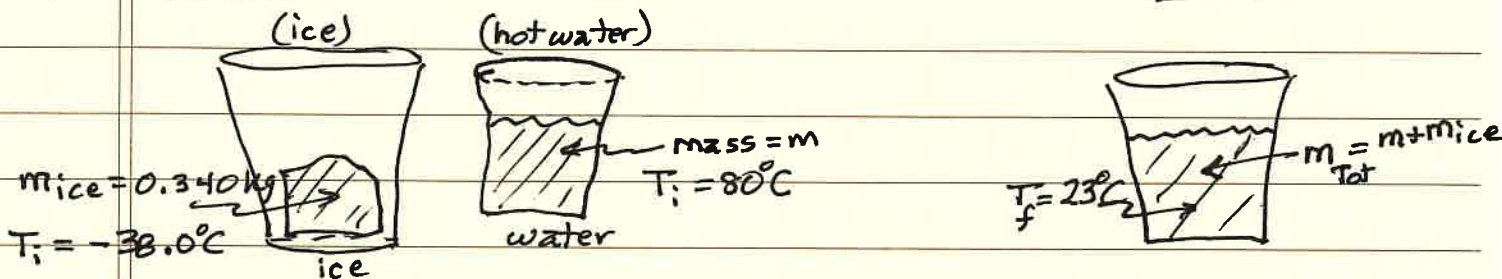 (ice)
(hot water)
m_ice = 0.340 kg
T_i = -38.0°C
ice
mass = m
T_i = 80°C
water
T_f = 23°C
m_Tot = m + m_ice